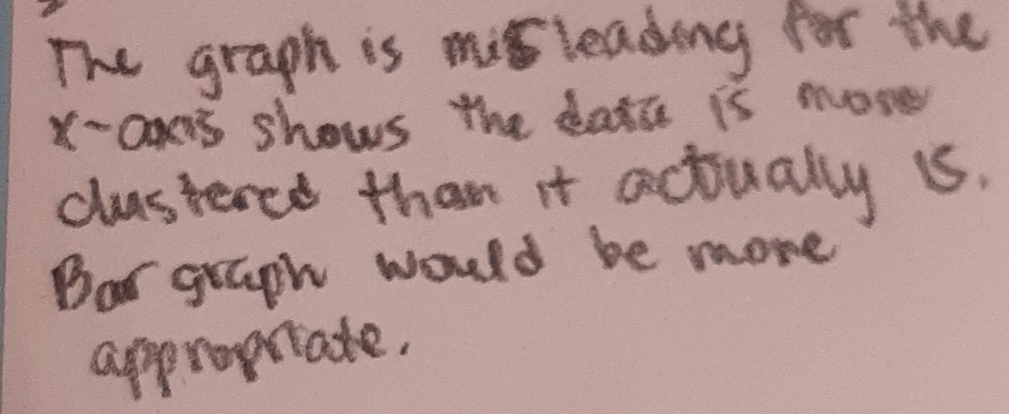 The graph is misleading for the
x-axis shows the data is more
clustered than it actually is.
Bar graph would be more
appropriate.